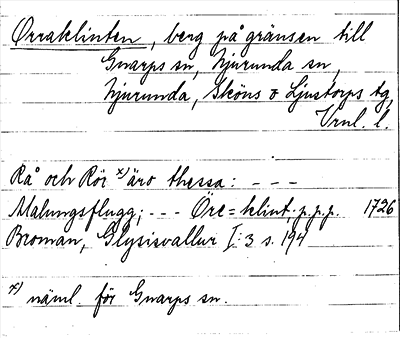 Orraklinten, berg på gränsen till
Gnarps sn, Njurunda sn,
Njurunda, Sköns o Ljustorps tg,
Vrnl. l.
Rå och Rör x) äro thessa: - - -
Malungsflugg; - - - Öre=klint; p.p.p. 1726
Broman, Glysisvallur I:3 s. 194
x) näml. för Gnarps sn.